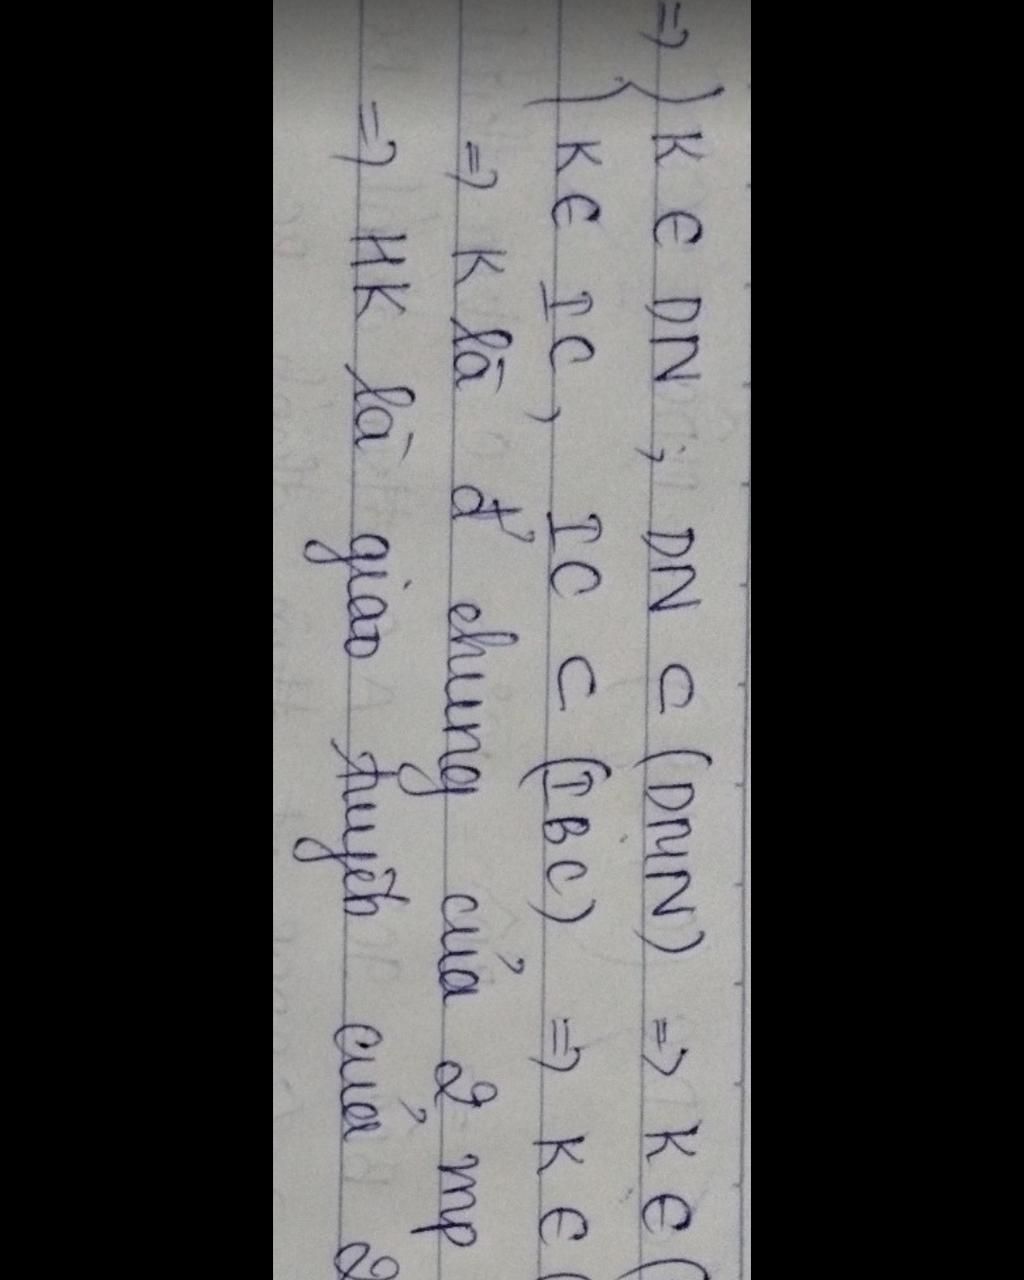 => { K ∈ DN, DN ⊂ (DMN) => K ∈ (
K ∈ IC, IC ⊂ (IBC) => K ∈ (
=> K là đ' chung của 2 mp
=> HK là giao tuyến của 2